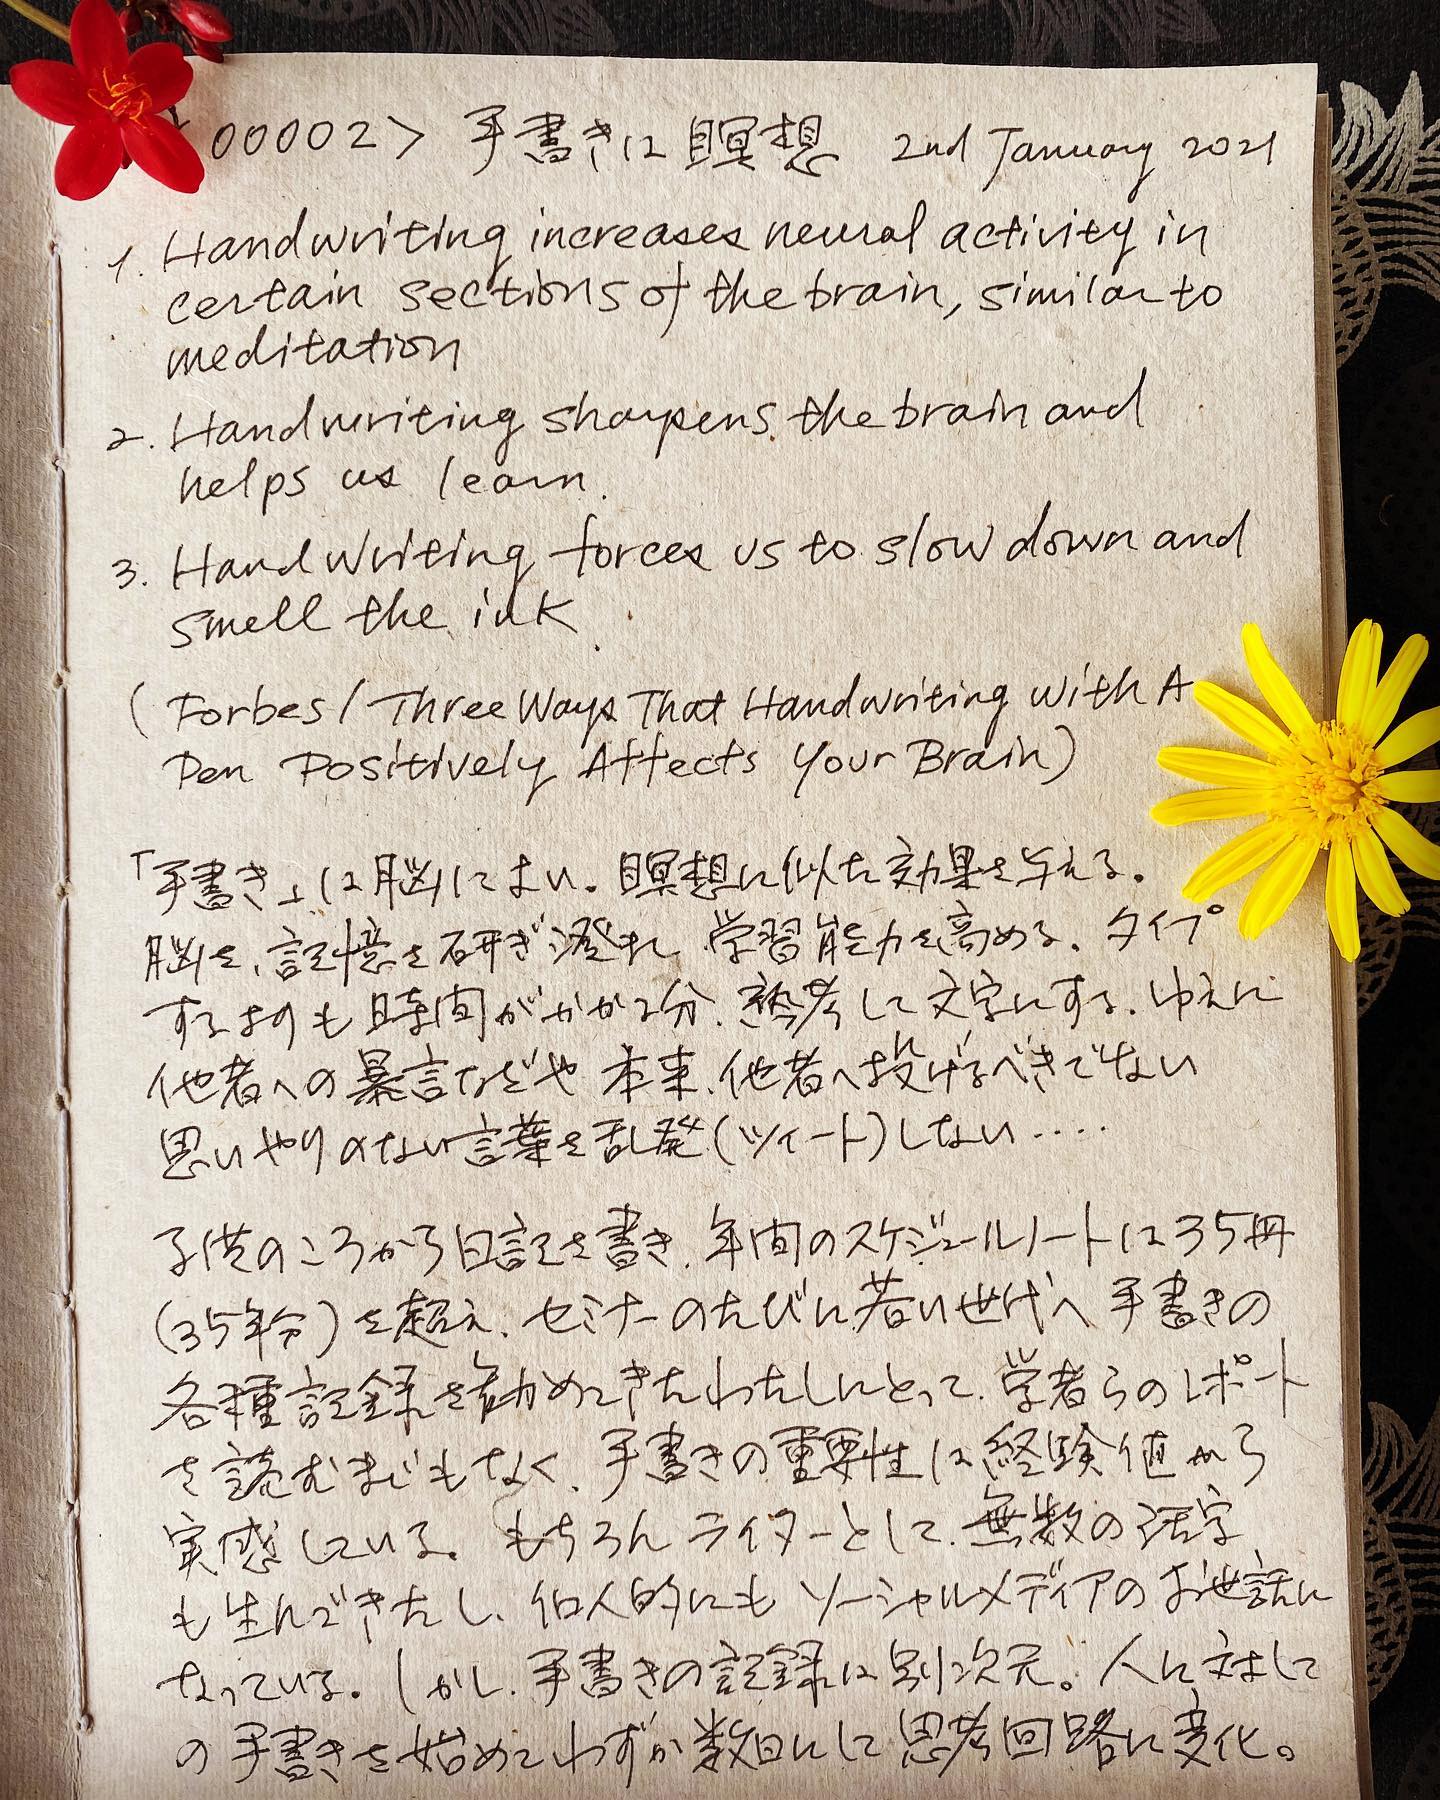 00002> 手書きは瞑想 2nd January 2021
1. Handwriting increases neural activity in
certain sections of the brain, similar to
meditation
2. Handwriting sharpens the brain and
helps us learn.
3. Handwriting forces us to slow down and
smell the ink.
(Forbes / Three Ways That Handwriting With A
Pen Positively Affects Your Brain)
「手書き」は脳によい。瞑想に似た効果を与える。
脳を、記憶を研ぎ澄まし、学習能力を高める。タイプ
するよりも時間がかかる分、熟考して文字にする。ゆえに
他者への暴言などや本来、他者へ投げるべきでない
思いやりのない言葉を乱発(ツイート)しない‥‥
子供のころから日記を書き、年間のスケジュールノートは35冊
(35年分)を超え、セミナーのたびに若い世代へ手書きの
各種記録を勧めてきたわたしにとって、学者らのレポート
を読むまでもなく、手書きの重要性は経験値から
実感している。もちろんライターとして、無数の活字
も生んできたし、個人的にもソーシャルメディアのお世話に
なっている。しかし、手書きの記録は別次元。人に対して
の手書きを始めてわずか数日にして思考回路に変化。